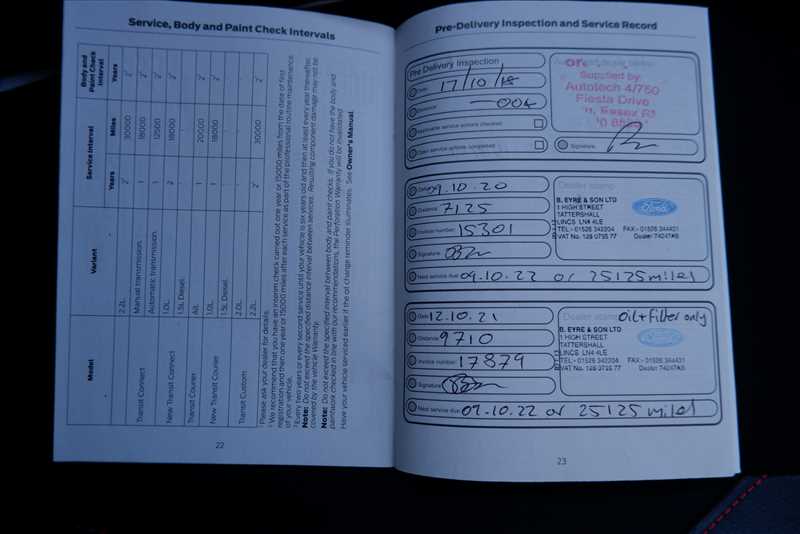 Service, Body and Paint Check Intervals
Model
Variant
Service Interval
Body and Paint Check Interval
Years
Miles
Years
2.2L
2
30000
2
Transit Connect
Manual transmission
1
18000
2
Automatic transmission
1
12500
2
New Transit Connect
1.0L
2
18000
2
1.5L Diesel
Transit Courier
All
1
20000
2
New Transit Courier
1.0L
1
18000
2
1.5L Diesel
Transit Custom
2.0L
2.2L
2
30000
2
Please ask your dealer for details.
We recommend that you have an interim check carried out one year or 15000 miles from the date of first
registration and then one year or 15000 miles after each service as part of the professional routine maintenance
of your vehicle.
Every two years or every second service until your vehicle is six years old and then at least every year thereafter.
Note: Do not exceed the specified distance interval between services. Resulting component damage may not be
covered by the vehicle Warranty.
Note: Do not exceed the specified interval between body and paint checks. If you do not have the body and
paintwork checked in line with our recommendations, the Perforation Warranty will be invalidated.
Have your vehicle serviced earlier if the oil change reminder illuminates. See Owner's Manual.
22
Pre-Delivery Inspection and Service Record
Pre Delivery Inspection
Date 17/10/18
Distance 004
Applicable service actions checked
Open service actions completed
Supplied by
Autotech 4/750
Fiesta Drive
Essex
Signature
Date 09.10.20
Distance 7125
Invoice number 15301
Signature
Next service due 09.10.22 or 25125 miles
Dealer stamp
B. EYRE & SON LTD
1 HIGH STREET
TATTERSHALL
LINCS LN4 4LE
TEL - 01526 342204 FAX - 01526 344431
VAT No. 128 0795 77
Ford
Date 12.10.21
Distance 9710
Invoice number 17879
Signature
Next service due 09.10.22 or 25125 miles
Dealer stamp
Oil + Filter only
B. EYRE & SON LTD
1 HIGH STREET
TATTERSHALL
LINCS LN4 4LE
TEL - 01526 342204 FAX - 01526 344431
VAT No. 128 0795 77
Ford
23